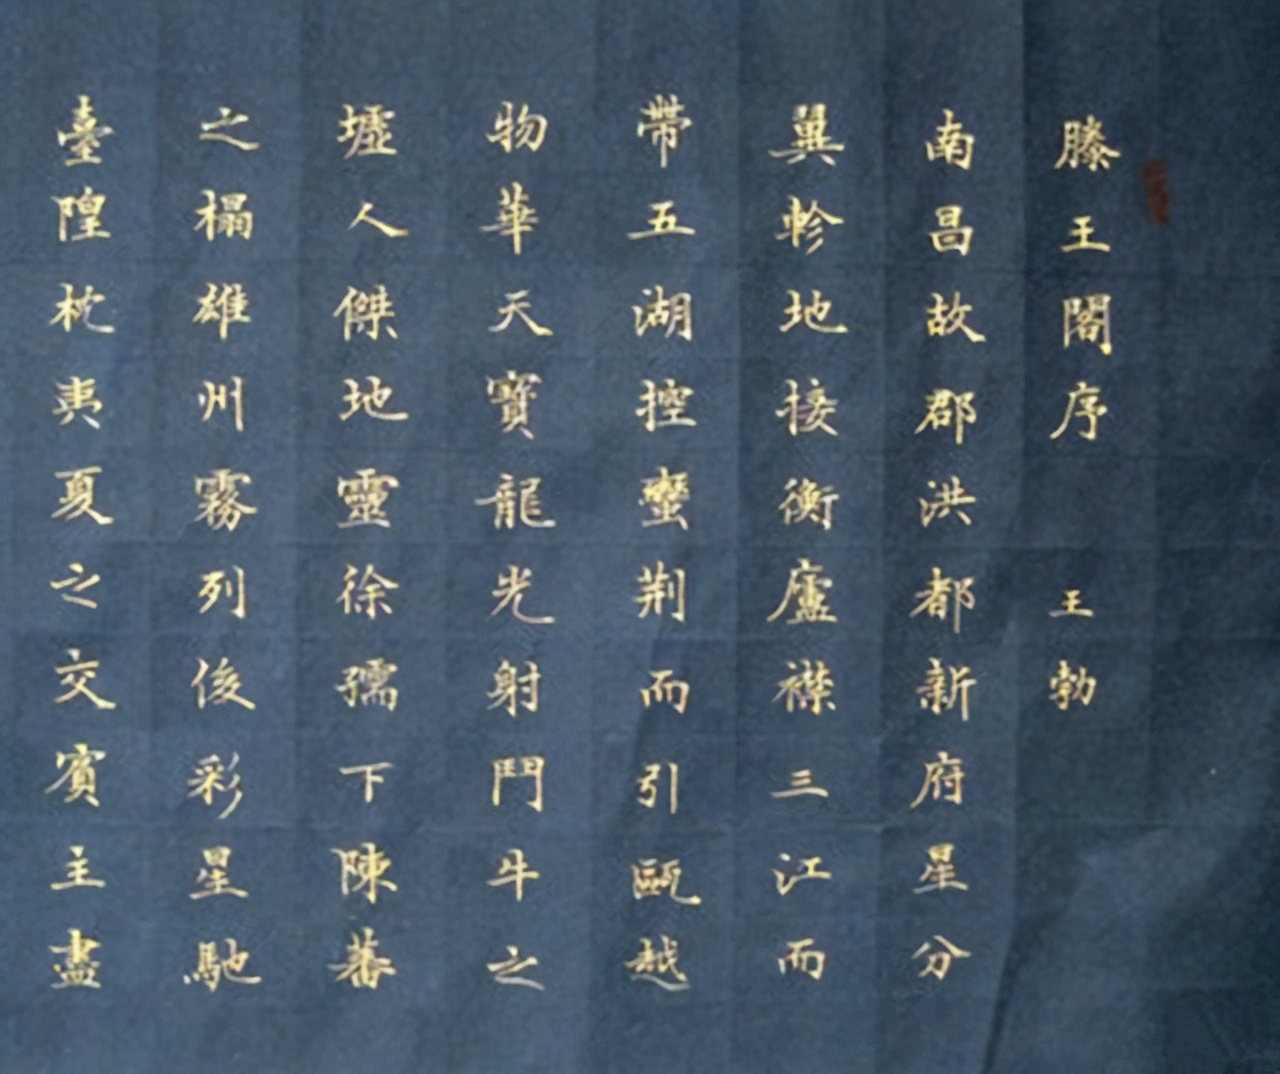 滕王閣序 王勃
南昌故郡洪都新府星分
翼軫地接衡廬襟三江而
帶五湖控蠻荆而引甌越
物華天寶龍光射鬥牛之
墟人傑地靈徐孺下陳蕃
之榻雄州霧列俊彩星馳
臺隍枕夷夏之交賓主盡